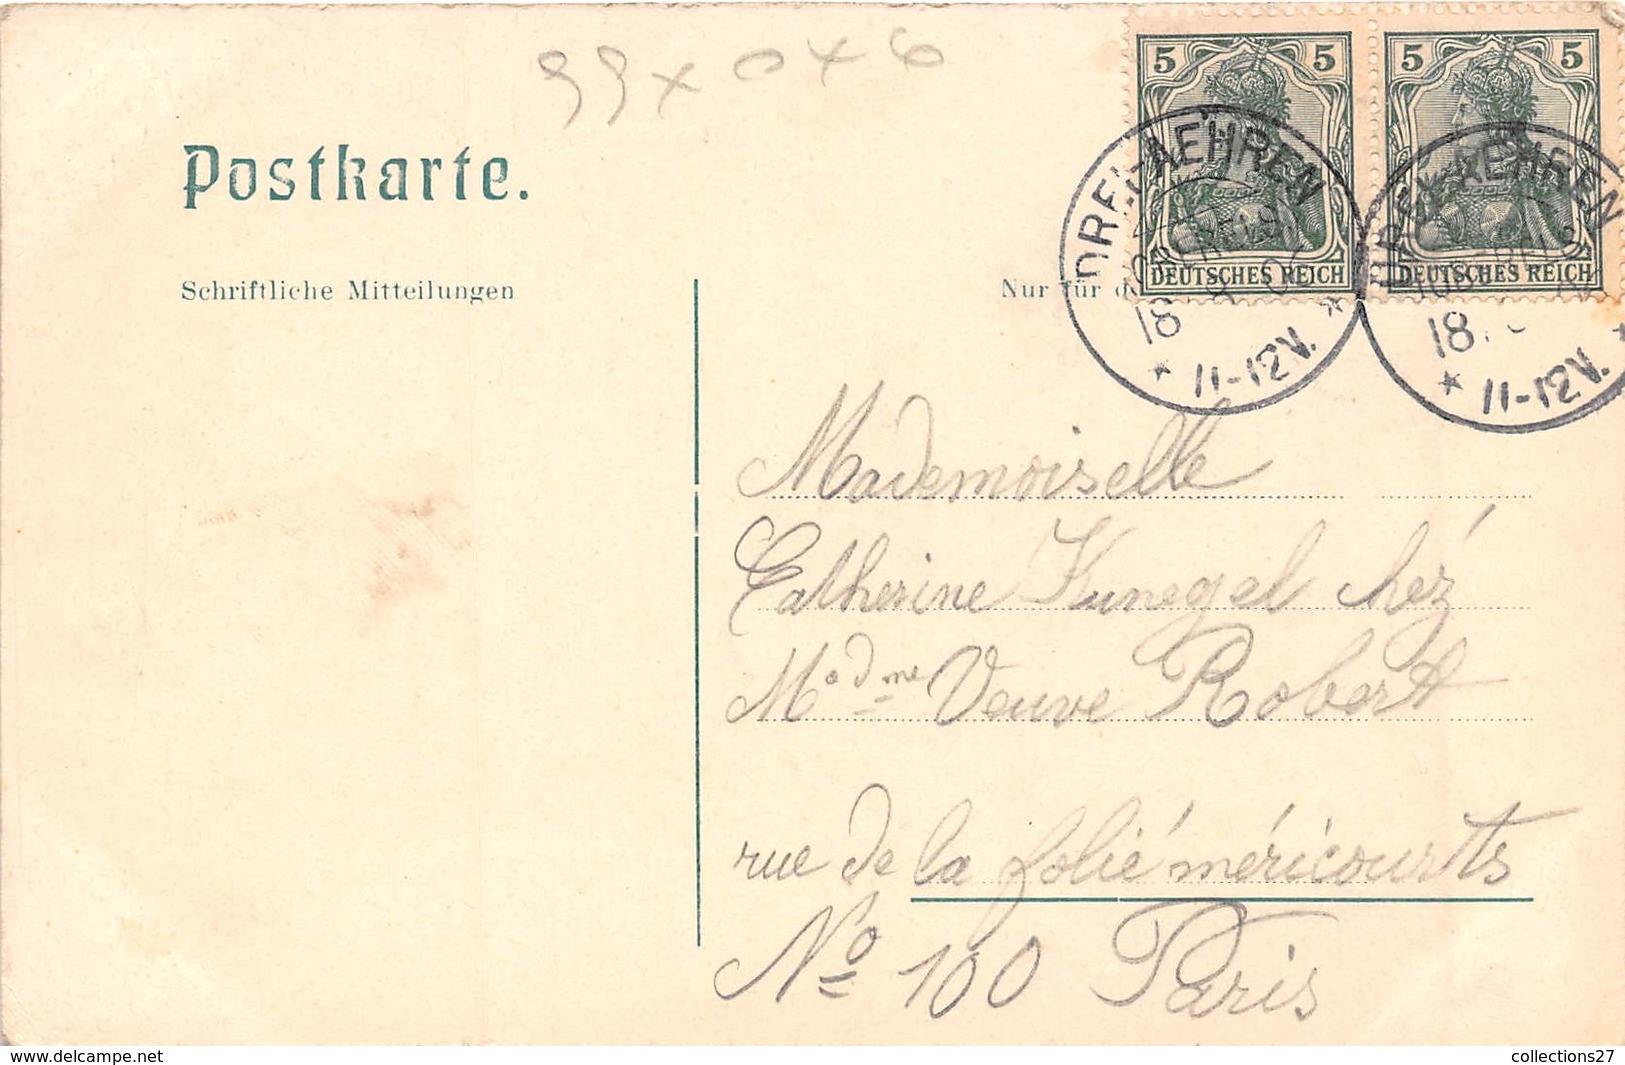 99 x 0 x 6
5 5 5 5
Postkarte.
DREI-AEHREN DREI-AEHREN
DEUTSCHES REICH DEUTSCHES REICH
Schriftliche Mitteilungen
Nur für
18 18
* 11-12V. * * 11-12V. *
Mademoiselle
Catherine Kunegel chéz
Madme Veuve Robert
rue de la folié méricourts
No 100 Paris
www.delcampe.net
collections27